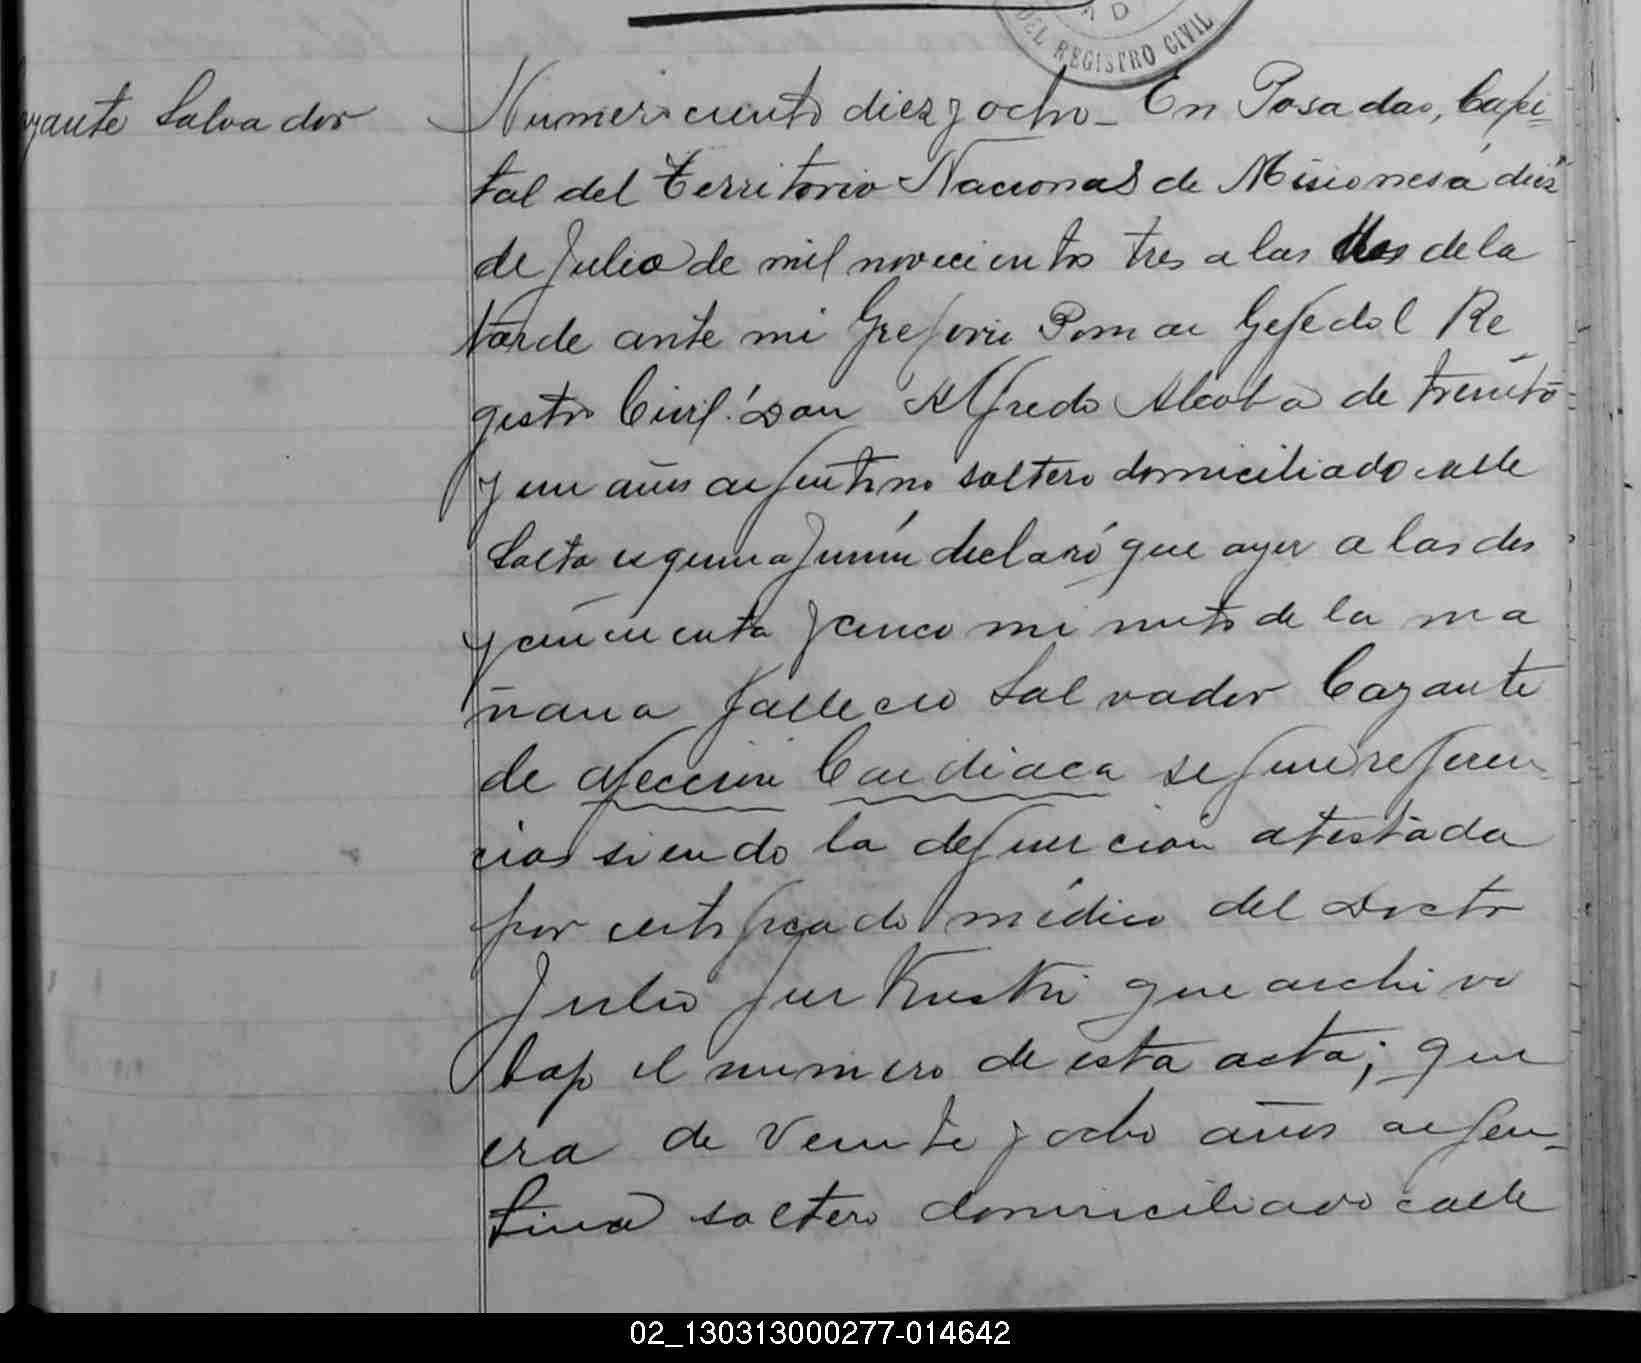 DEL REGISTRO CIVIL
Salvador
Numero ciento diez y ocho_ En Posadas, Capi=
tal del Territorio Nacional de Misiones á diez
de Julio de mil novecientos tres a las dos de la
tarde ante mi Gregorio Pomar Gefe del Re
gistro Civil: Don Alfredo Alcoba de treinta
y un años argentino soltero domiciliado calle
Salta esquina Junín declaró que ayer a las dos
y cincuenta y cinco minutos de la ma
ñana fallecio Salvador Cazante
de afeccion Cardiaca segun referen
cias siendo la defuncion atestada
por certificado médico del Doctor
Julio que archivo
bajo el numero de esta acta; que
era de veinte y ocho años argen_
tino soltero domiciliado calle
02_130313000277-014642